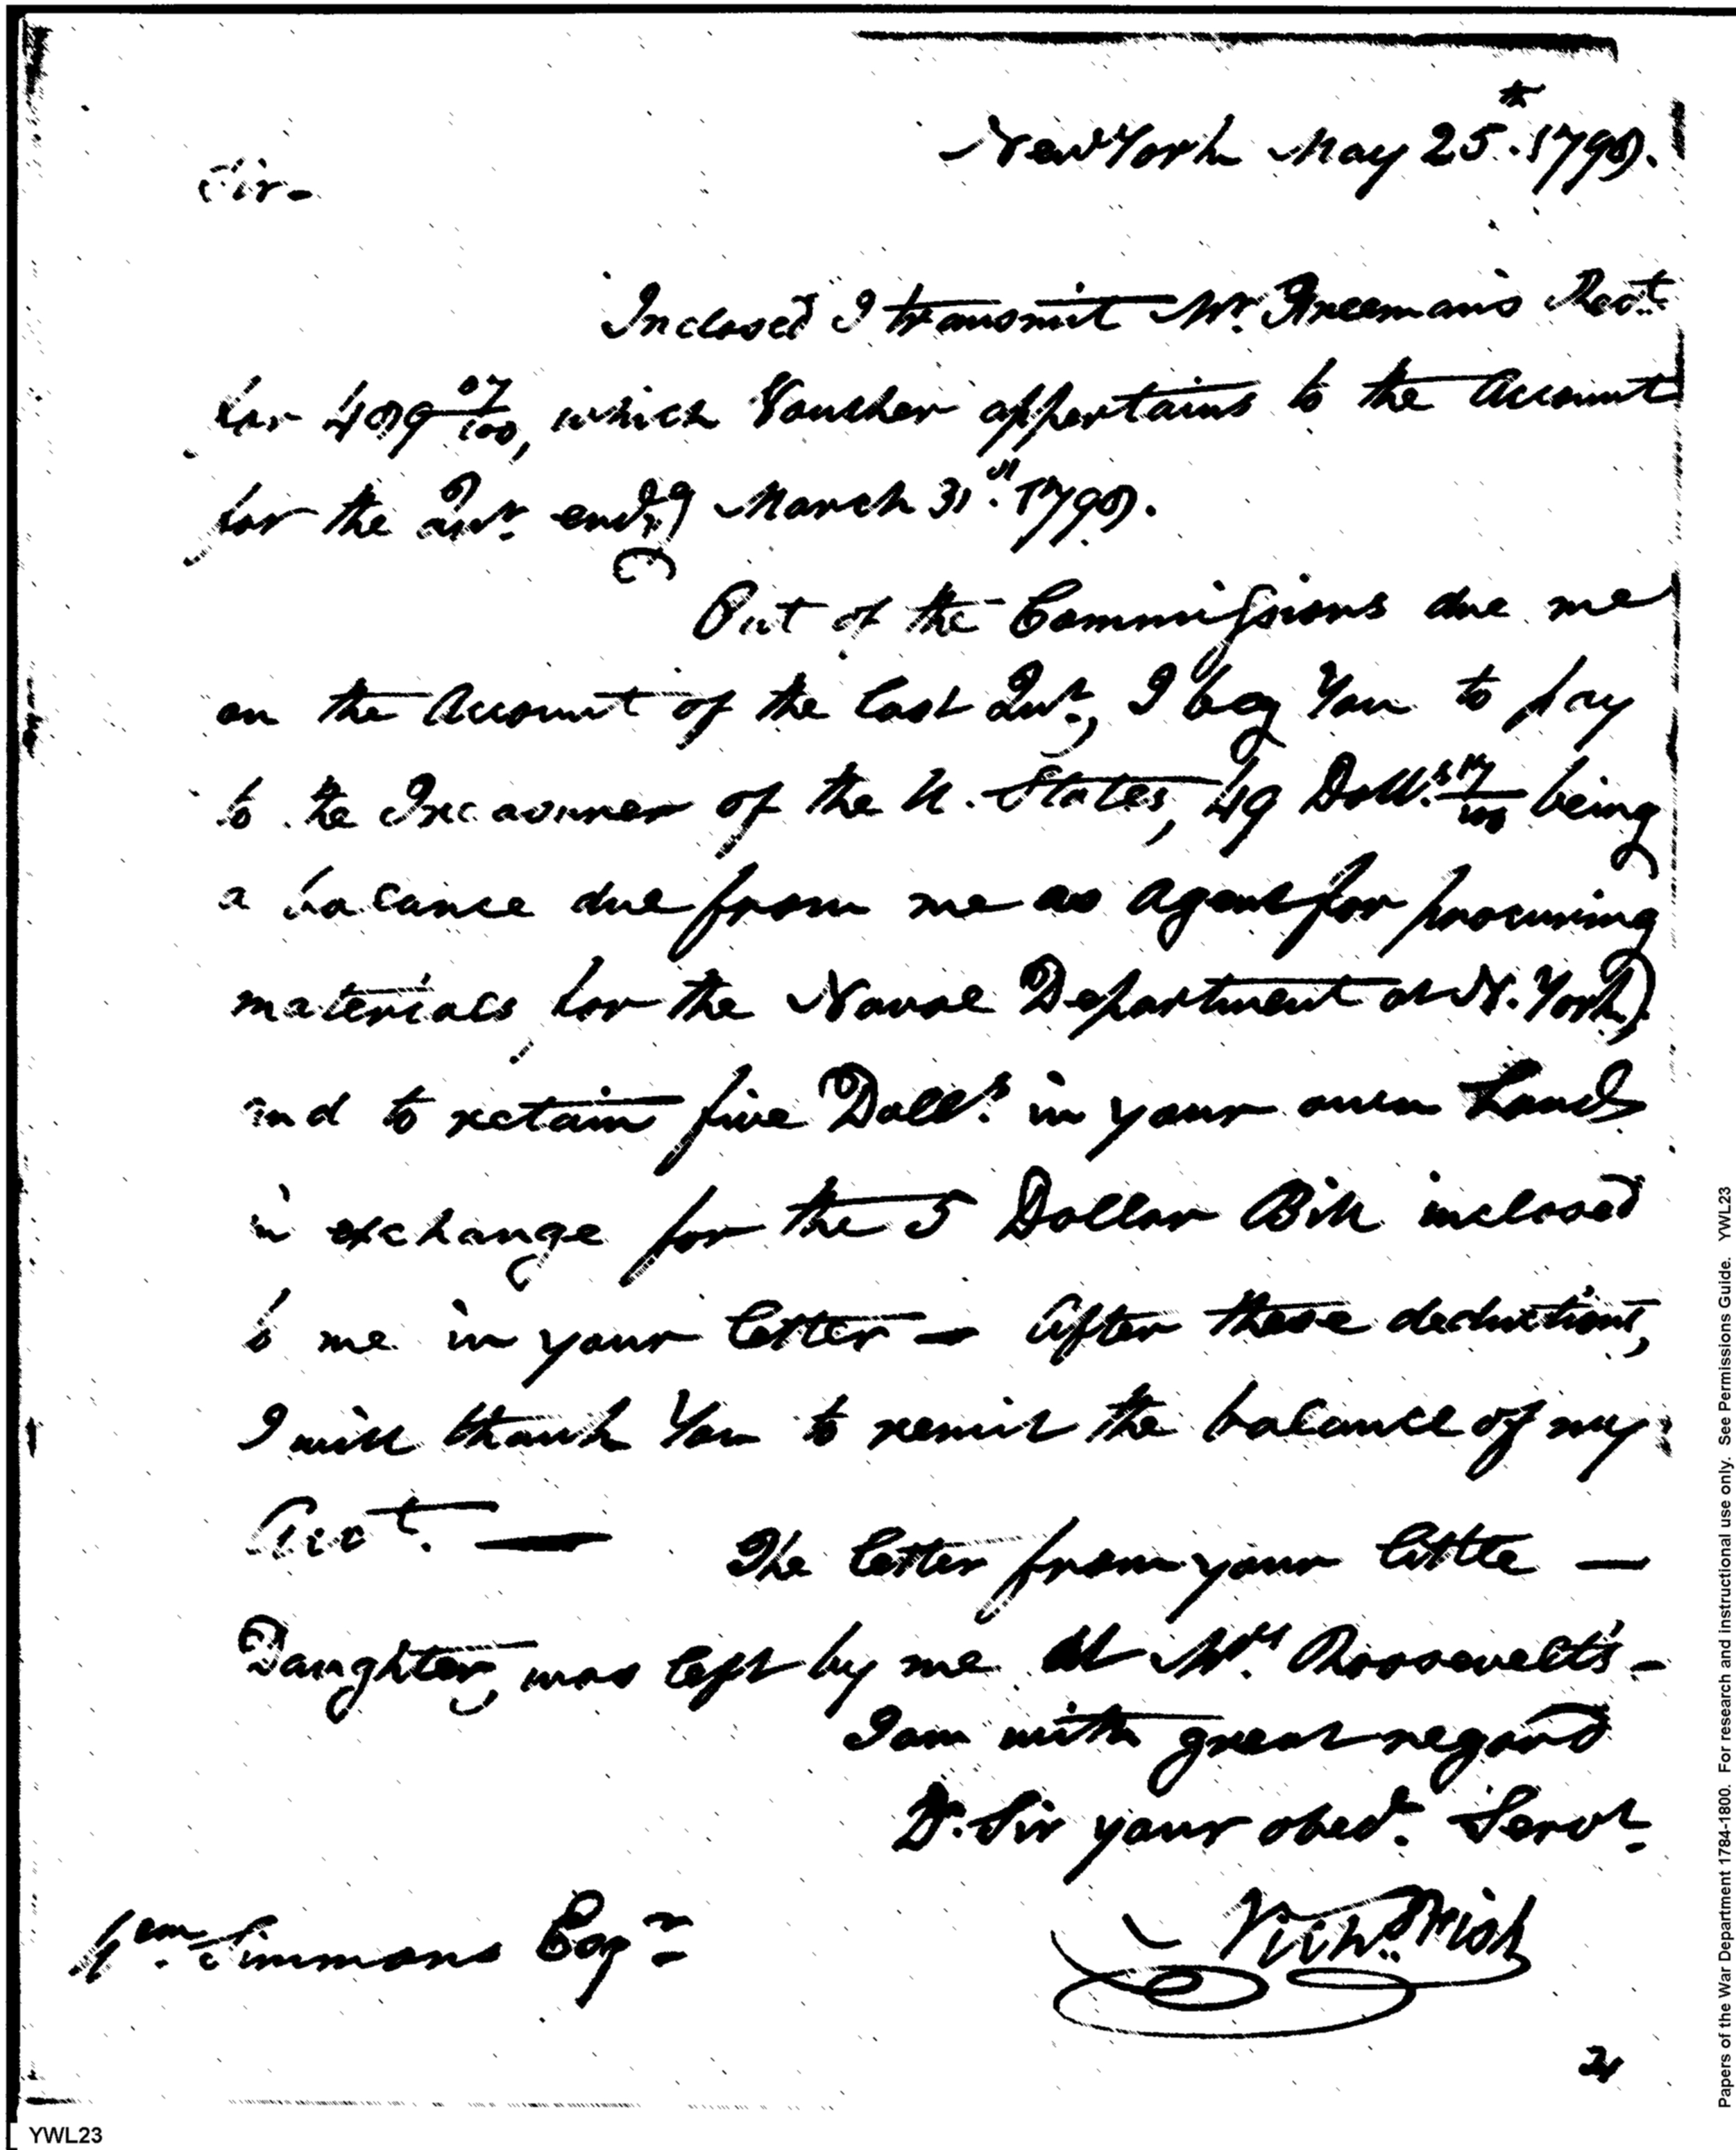 New York May 25. 1798.
Sir -
Inclosed I transmit Mr. Freeman's Rect.
for 489 07/100, which Voucher appertains to the Account
for the Qur. endg. March 31st. 1798.
Out of the Commissions due me
on the Account of the last Qur., I beg You to pay
to the Treasurer of the U. States, 49 Dolls. 17/100 being
a balance due from me as agent for procuring
materials for the Naval Department at N. York,
and to retain five Dolls. in your own hands
in exchange for the 5 Dollar Bill inclosed
to me in your letter — After these deductions,
I will thank You to remit the balance of my
Acct. — The letter from your little —
Daughter, was left by me at Mrs. Roosevelt's -
I am with great regard
Dr. Sir your obed. Servt.
Nichs. Fish
Wm. Simmons Esqr.
YWL23
Papers of the War Department 1784-1800. For research and instructional use only. See Permissions Guide. YWL23